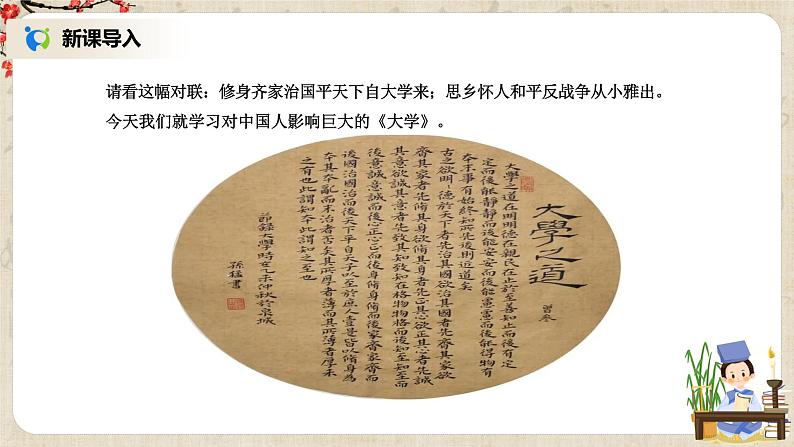 新课导入
请看这幅对联：修身齐家治国平天下自大学来；思乡怀人和平反战争从小雅出。
今天我们就学习对中国人影响巨大的《大学》。
大學之道
曾參
大學之道在明明德在親民在止於至善知止而后有定
定而後能靜靜而後能安安而後能慮慮而後能得物有
本末事有始終知所先後則近道矣
古之欲明=德於天下者先治其國欲治其國者先齊其家欲
齊其家者先脩其身欲脩其身者先正其心欲正其心者先誠
其意欲誠其意者先致其知致知在格物物格而后知至知至而
後意誠意誠而后心正心正而后身脩身脩而后家齊家齊而
後國治國治而后天下平自天子以至於庶人壹是皆以脩身為
本其本亂而末治者否矣其所厚者薄而其所薄者厚未
之有也此謂知本此謂知之至也
節錄大學時在乙未仲秋於泉城
孫猛書